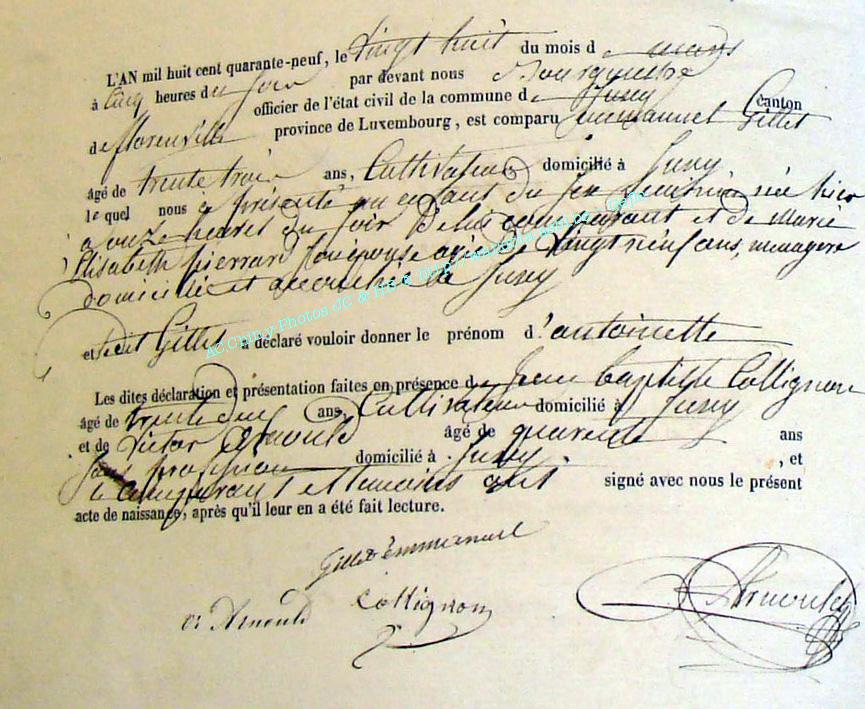 L'AN mil huit cent quarante-neuf, le vingt huit du mois de mars
à cinq heures du soir par devant nous Bourgmestre
officier de l'état civil de la commune de Jusey canton
de florenville province de Luxembourg, est comparu Emmanuel Gillet
âgé de trente trois ans, Cultivateur domicilié à Jusey
lequel nous a présenté un enfant du sexe féminin née hier
a onze heures du soir De lui comparant et de Marie
Elisabeth pierrard son épouse agée de vingt neuf ans, menagere
domiciliée et accouchée à Jusey
et ledit Gillet a déclaré vouloir donner le prénom d'antoinette
Les dites déclaration et présentation faites en présence de Jean baptiste Collignon
âgé de trente deux ans, Cultivateur domicilié à Jusey
et de Victor Arnould âgé de quarante ans
sans profession domicilié à Jusey, et
le comparant et temoins ont signé avec nous le présent
acte de naissance, après qu'il leur en a été fait lecture.
Gillet Emmanuel
vr Arnould Collignon Arnould
AC Chiny Photos JC &